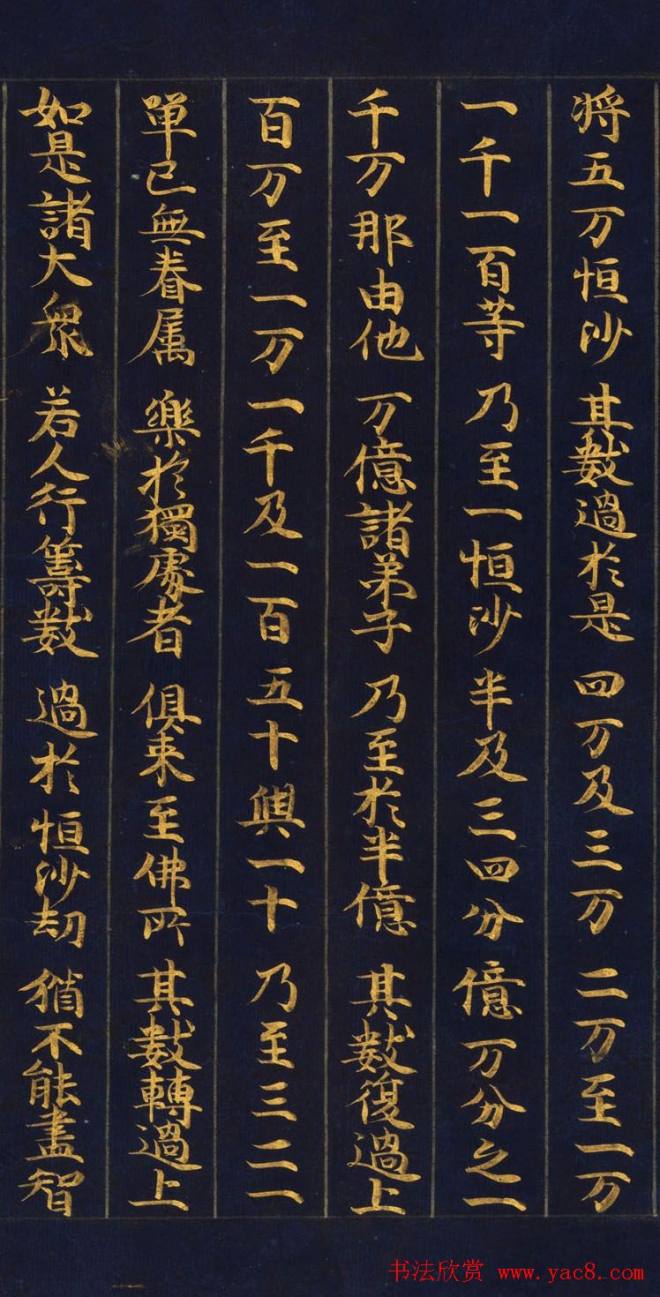 将五万恒沙 其數過於是 四万及三万 二万至一万
一千一百等 乃至一恒沙 半及三四分 億万分之一
千万那由他 万億諸弟子 乃至於半億 其數復過上
百万至一万 一千及一百 五十與一十 乃至三二一
單己無眷属 樂於獨處者 俱来至佛所 其數轉過上
如是諸大衆 若人行籌數 過於恒沙劫 猶不能盡智
书法欣赏 www.yac8.com